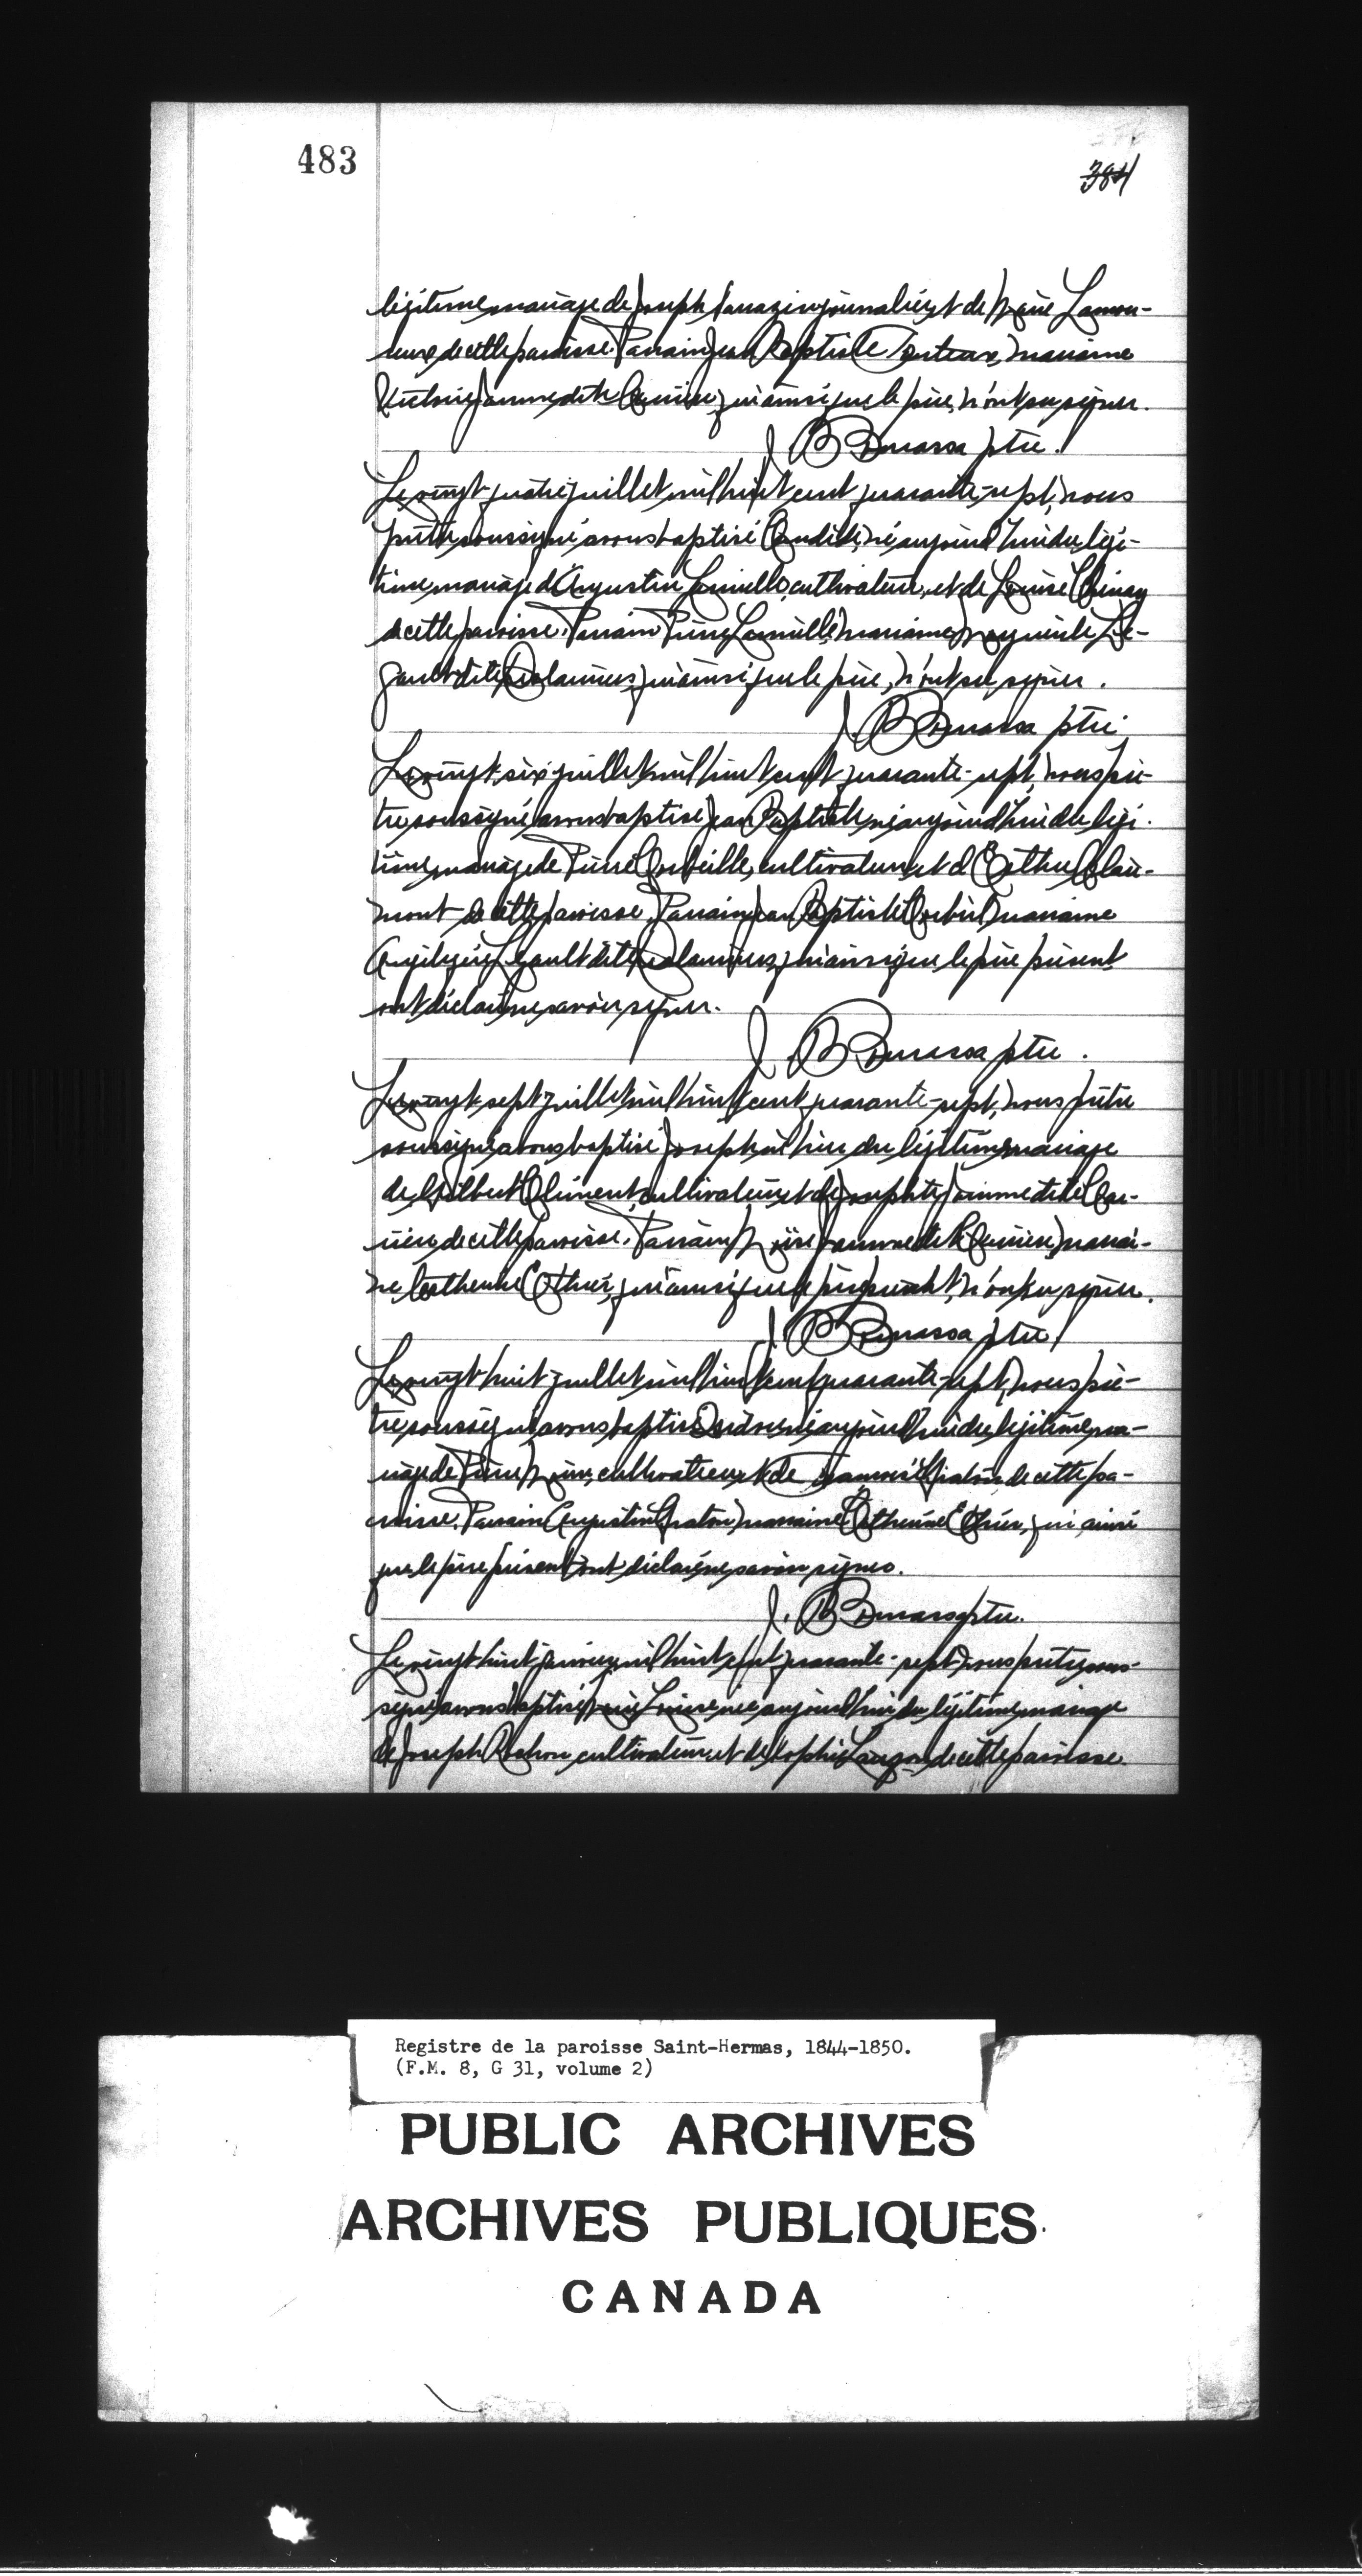 483
384
légitime mariage de Joseph Sarrazin journalier, et de Marie Lamou-
reux de cette paroisse. Parrain Jean Baptiste marraine
Victoire Jeaunne dite Carrière, qui ainsi que le père, n'ont su signer.
J. B Bourassa ptre.
Le vingt-quatre juillet mil huit cent quarante-sept, nous
prêtre soussigné avons baptisé Candide, né aujourd'hui du légi-
time mariage d'Augustin Lamille, cultivateur, et de Louise
de cette paroisse. Parrain Pierre marraine Marguerite Le-
gault dite Deslauriers, qui ainsi que le père, n'ont su signer.
J. B Bourassa ptre
Le vingt-six juillet mil huit cent quarante-sept, nous prê-
tre soussigné avons baptisé Jean Baptiste né aujourd'hui du légi-
time mariage de Pierre Corbeille, cultivateur, et d'Esther Clair-
mont de cette paroisse. Parrain Jean Baptiste Corbeil marraine
Angélique Legault dite Deslauriers, qui ainsi que le père présent
ont déclaré ne savoir signer.
J. B Bourassa ptre.
Le vingt-sept juillet mil huit cent quarante-sept, nous prêtre
soussigné avons baptisé Joseph né hier du légitime mariage
de Gilbert Clément, cultivateur, et de Josephte Jeaunne dite Car-
rière, de cette paroisse. Parrain Moïse Jeaunne dit Carrière, marrai-
ne Catherine Ethier, qui ainsi que le père présent, n'ont su signer.
J. B Bourassa ptre.
Le vingt-huit juillet mil huit cent quarante-sept, nous prê-
tre soussigné avons baptisé Isidore né aujourd'hui du légitime ma-
riage de Pierre cultivateur, et de Graton de cette pa-
roisse. Parrain Augustin Graton marraine Catherine Ethier, qui ainsi
que le père présent ont déclaré ne savoir signer.
J. B Bourassa ptre.
Le vingt-huit janvier mil huit cent quarante-sept, nous prêtre sous-
signé avons baptisé Marie Louise née aujourd'hui du légitime mariage
de Joseph Rochon cultivateur, et de Sophie Lauzon de cette paroisse.
Registre de la paroisse Saint-Hermas, 1844-1850.
(F.M. 8, G 31, volume 2)
PUBLIC ARCHIVES
ARCHIVES PUBLIQUES
CANADA